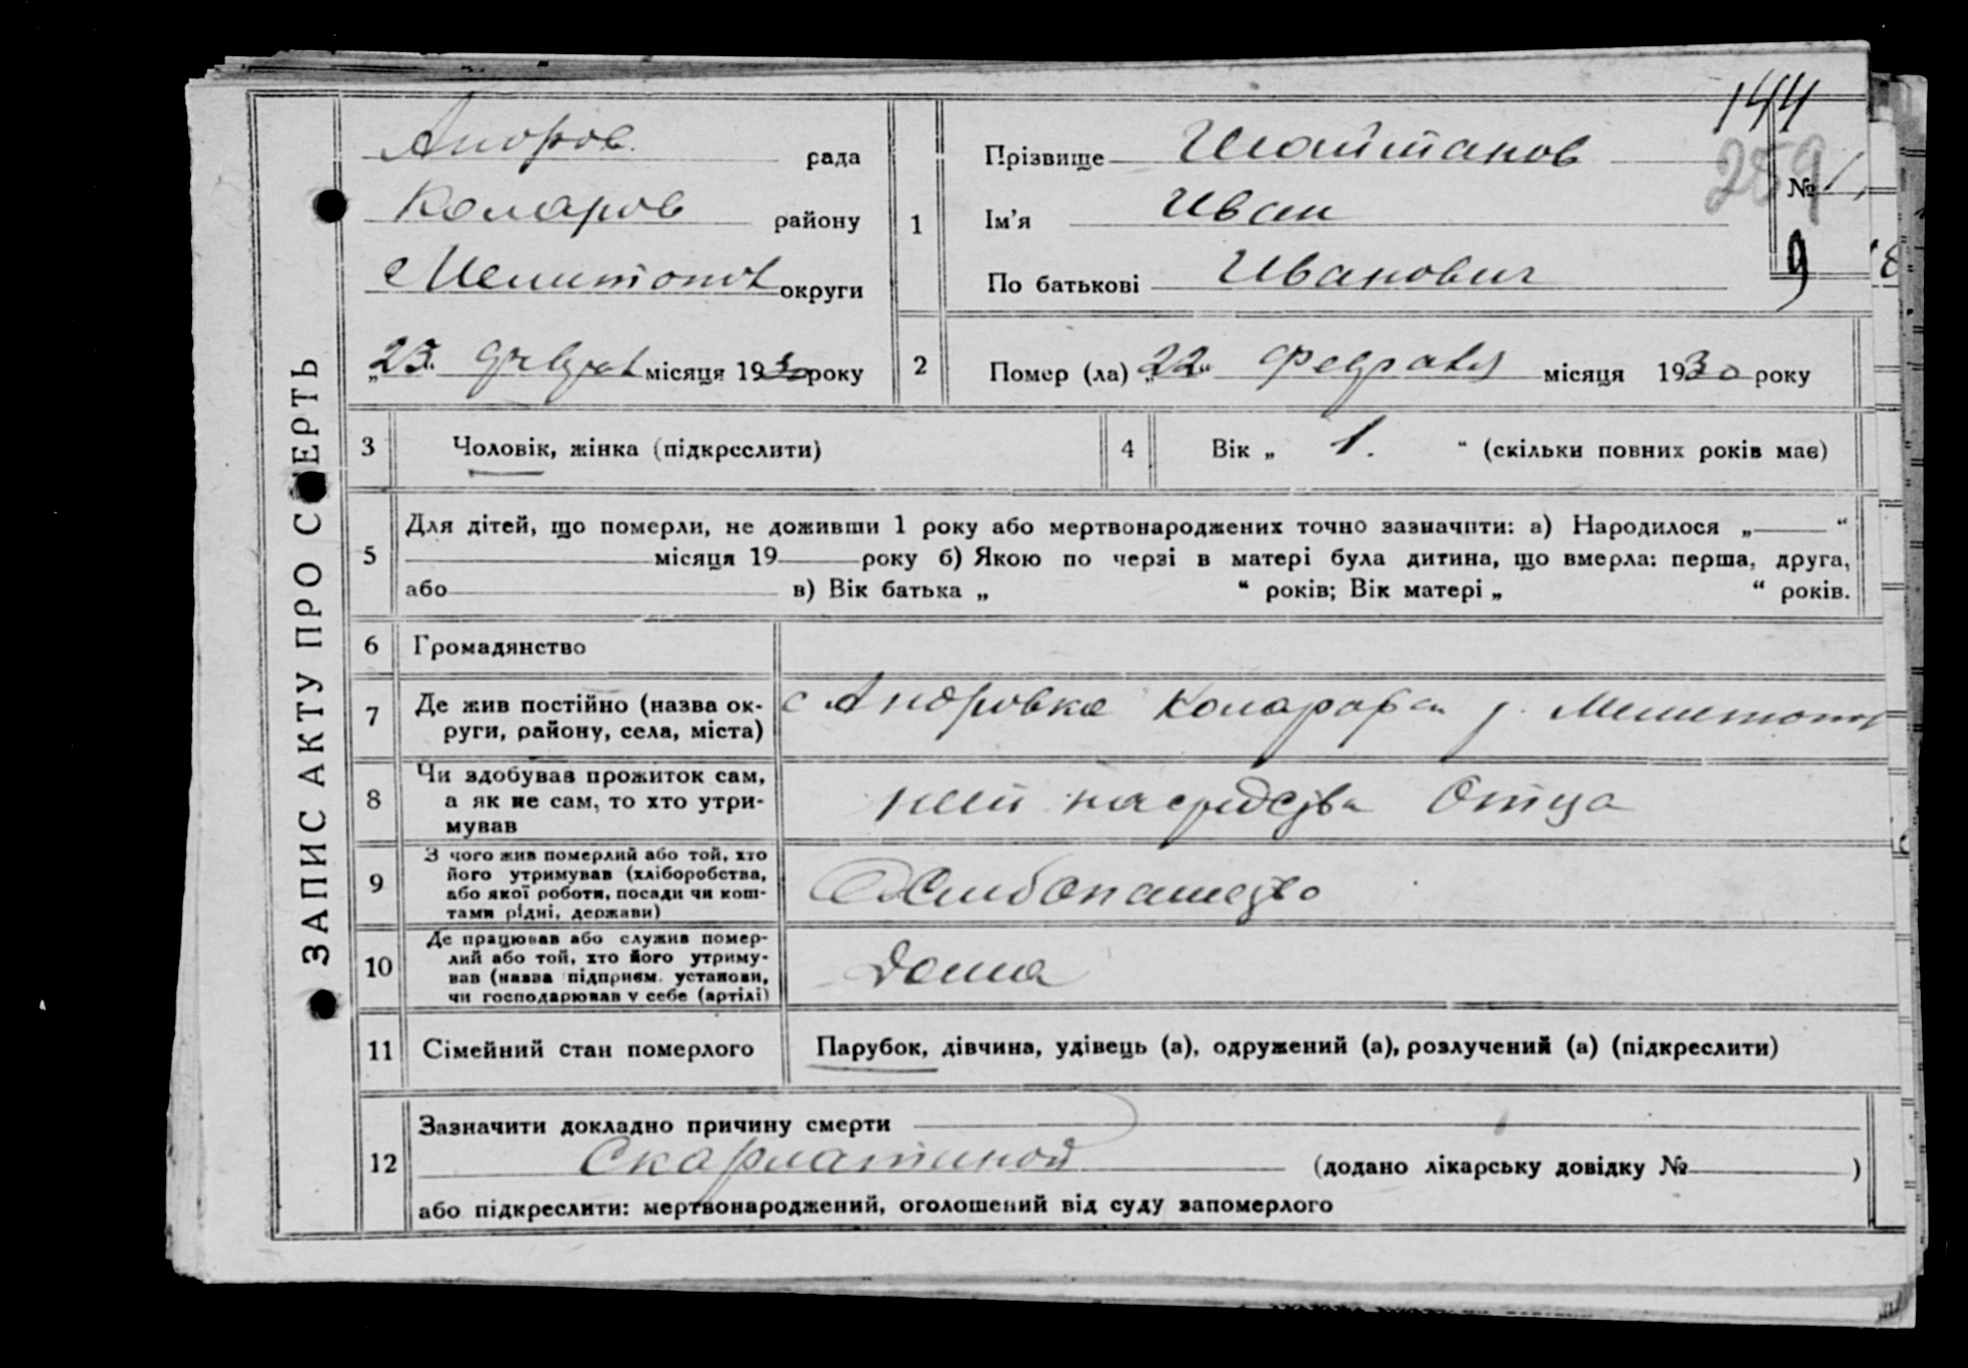 ЗАПИС АКТУ ПРО СМЕРТЬ
144
259
Андров. рада
Коларов району
Мелитопол округи
„23“ феврал місяця 1930 року
1
Прізвище Шайтанов
Ім’я Иван
По батькові Иванович
№
9
2
Помер (ла) „22“ февраля місяця 1930 року
3 Чоловік, жінка (підкреслити)
4 Вік „ 1. “ (скільки повних років має)
5
Для дітей, що померли, не доживши 1 року або мертвонароджених точно зазначити: а) Народилося „ “
місяця 19 року б) Якою по черзі в матері була дитина, що вмерла: перша, друга,
або в) Вік батька „ “ років; Вік матері „ “ років.
6 Громадянство
7 Де жив постійно (назва ок-
руги, району, села, міста)
с Андровка Колар р. Мелитопол
8 Чи здобував прожиток сам,
а як не сам, то хто утри-
мував
на средства Отца
9 З чого жив померлий або той, хто
його утримував (хліборобства,
або якої роботи, посади чи кош-
тами рідні, держави)
Хлибопашество
10 Де працював або служив помер-
лий або той, хто його утриму-
вав (назва підприєм. установи,
чи господарював у себе (артілі)
Дома
11 Сімейний стан померлого
Парубок, дівчина, удівець (а), одружений (а), розлучений (а) (підкреслити)
12
Зазначити докладно причину смерти
Скарлатиной (додано лікарську довідку № )
або підкреслити: мертвонароджений, оголошений від суду запомерлого